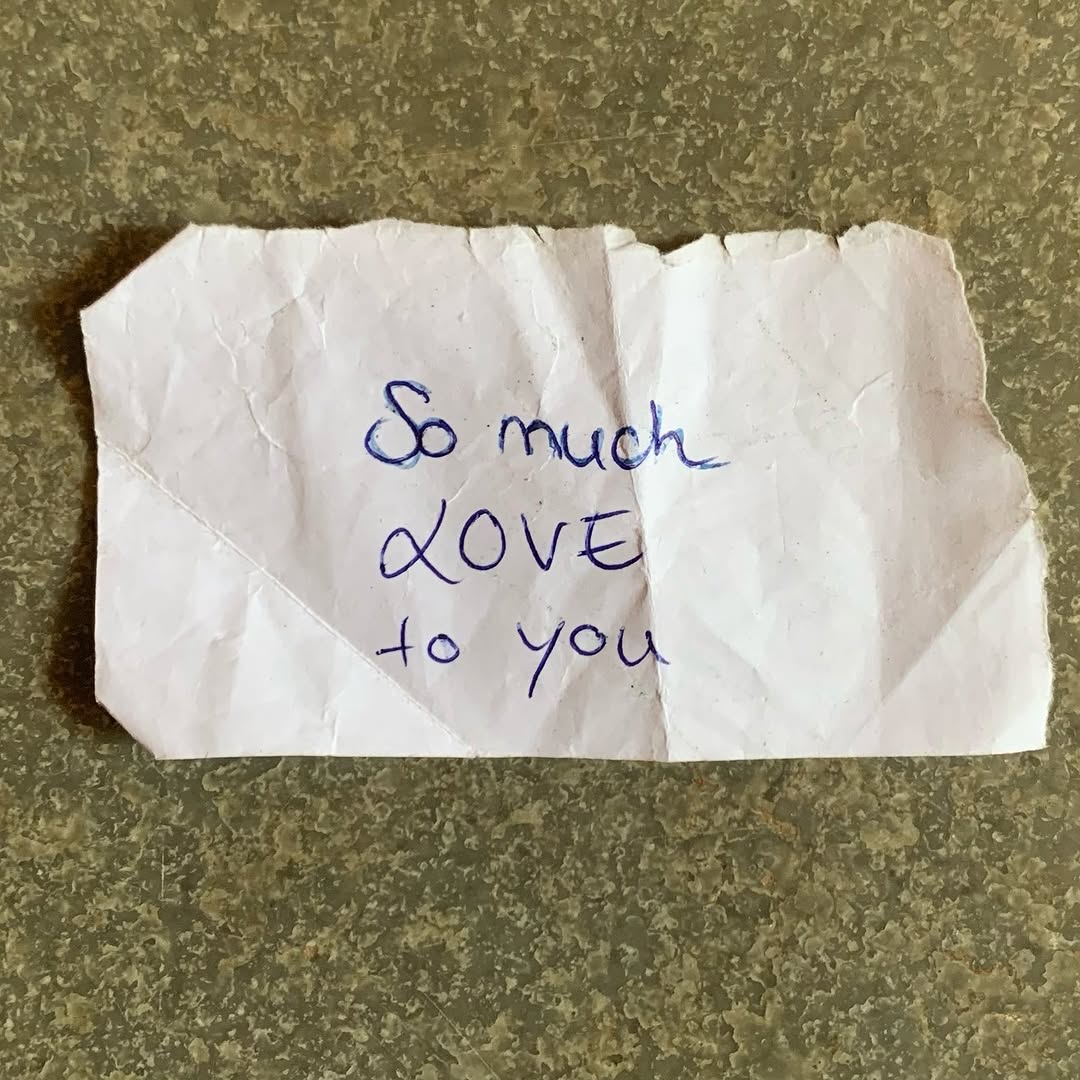 So much
LOVE
to you